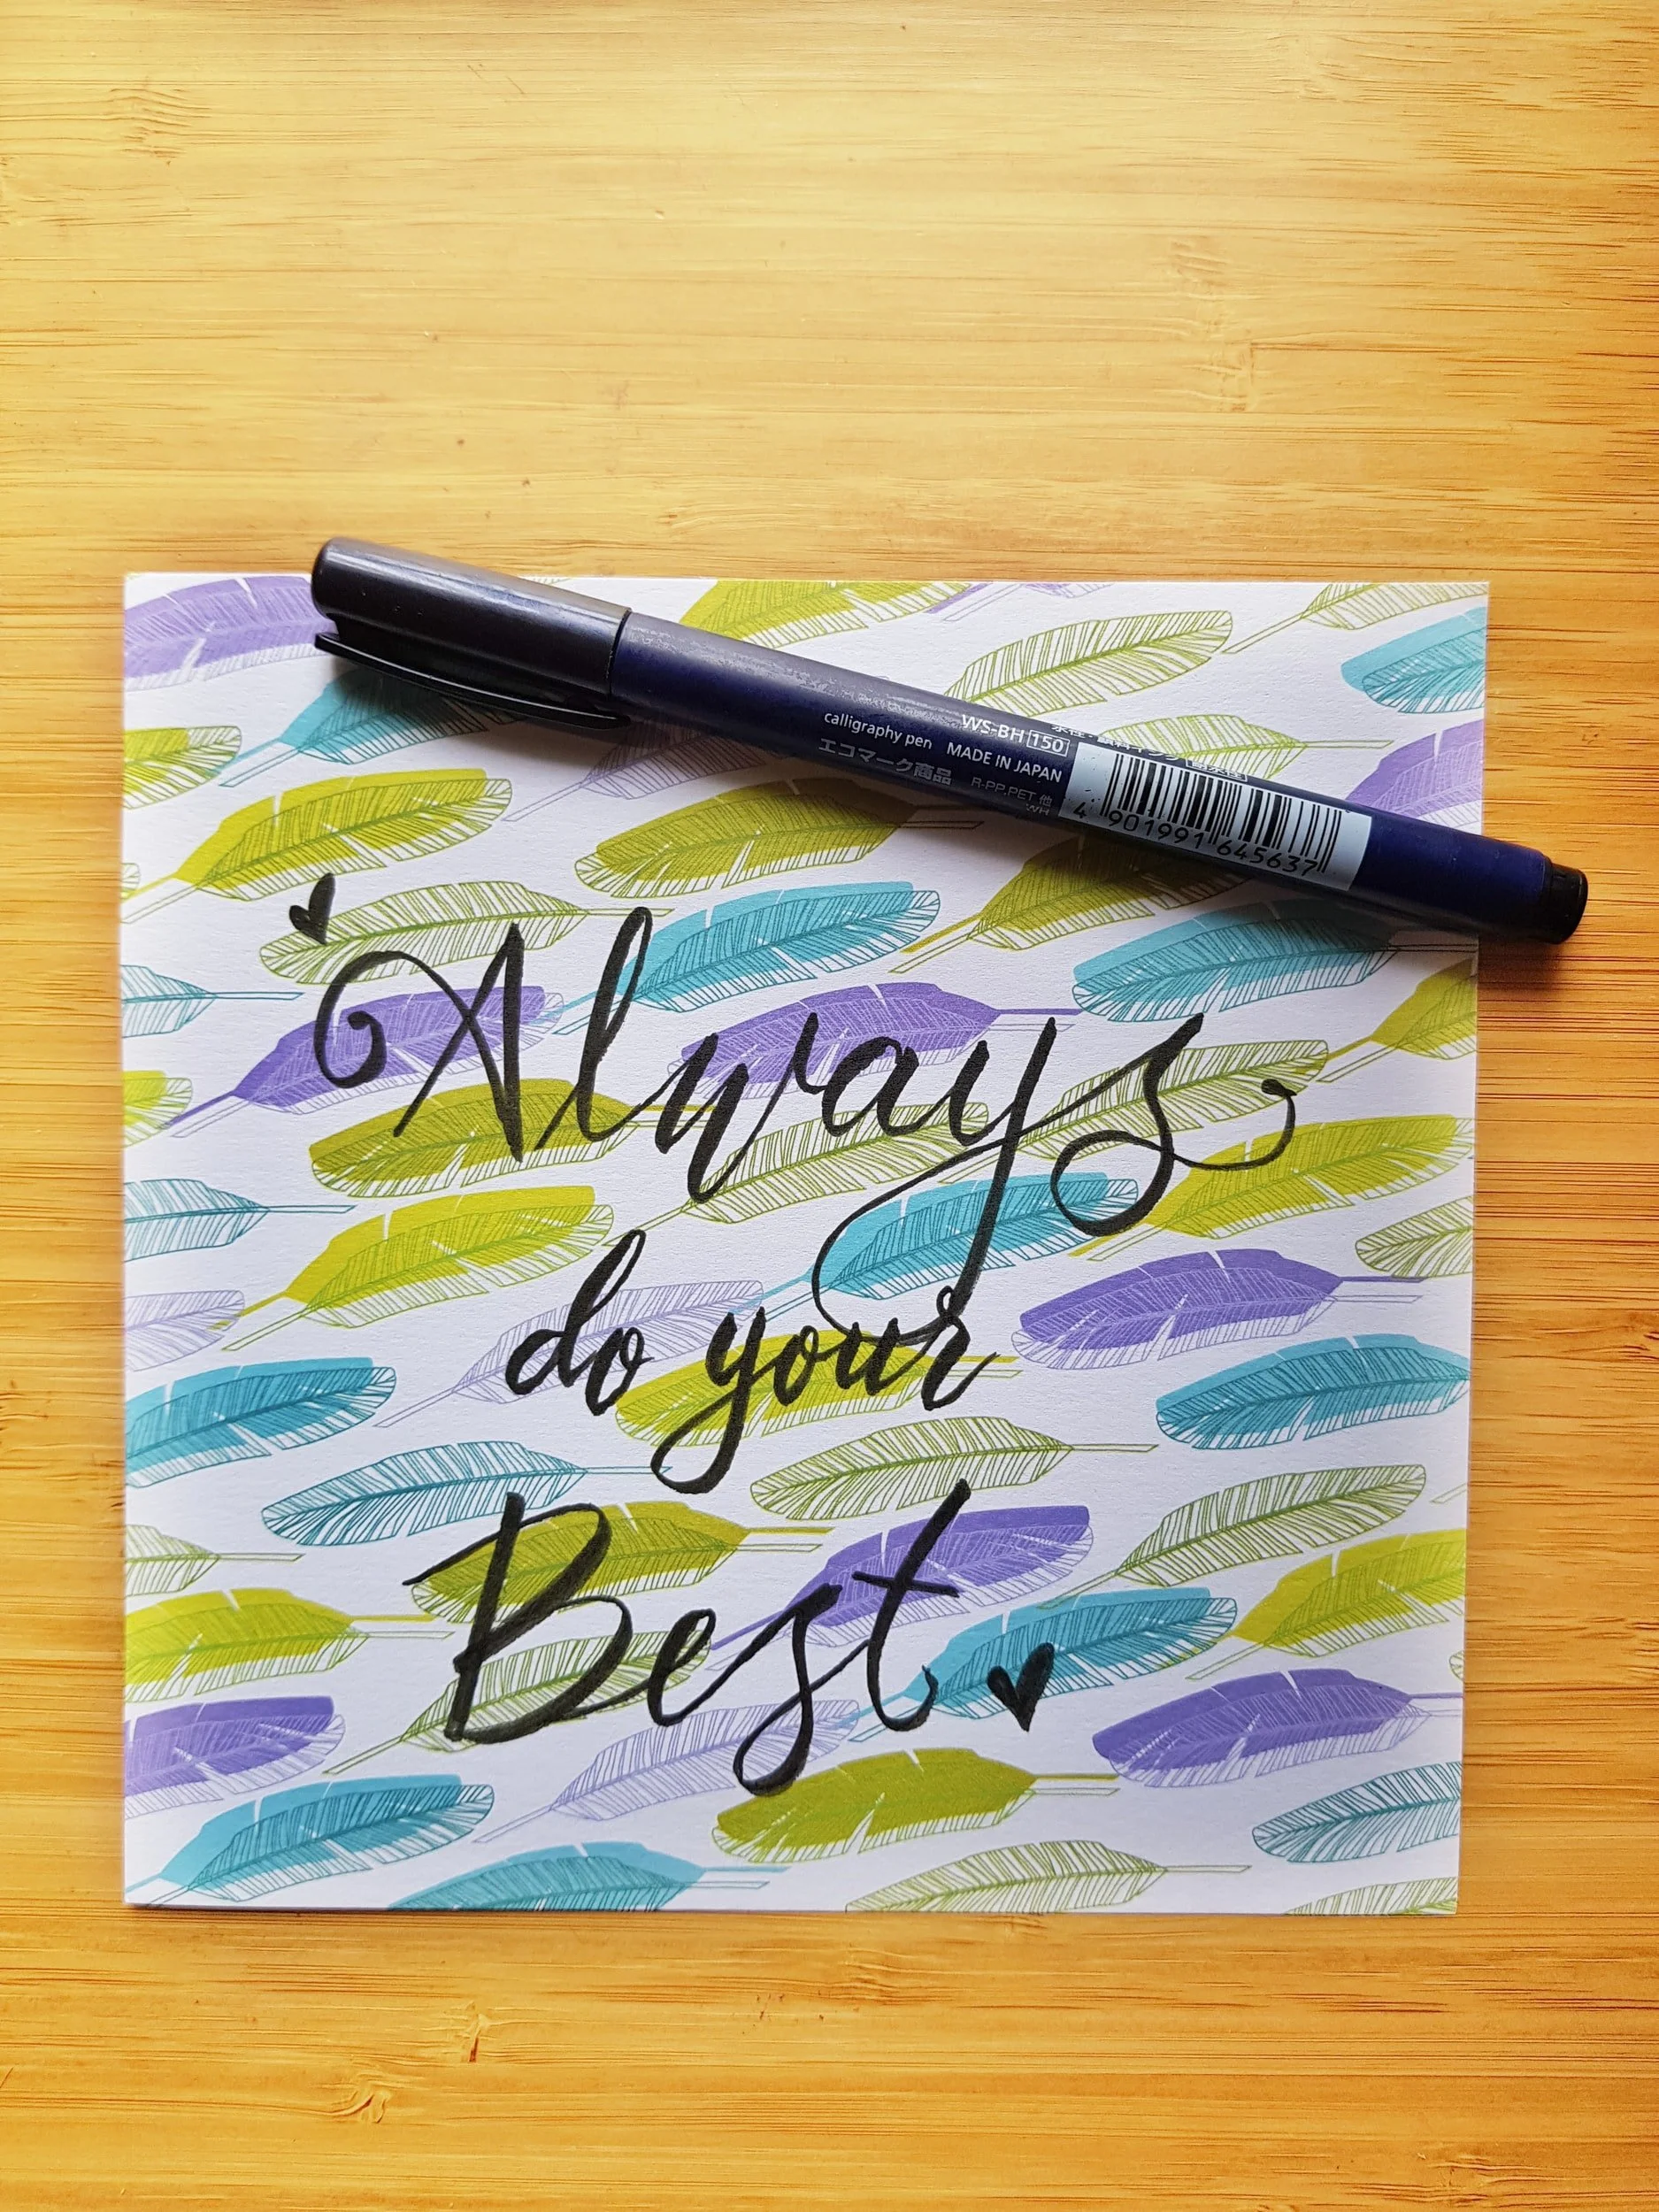 calligraphy pen MADE IN JAPAN
WS-BH 150
エコマーク商品
R-PP.PET.他
WH
4 901991 645637
Always
do your
Best